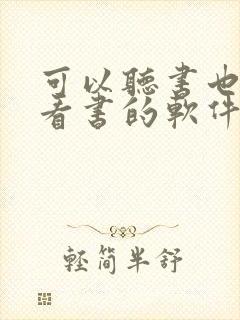 可以聽書也
看書的軟件
輕簡半舒